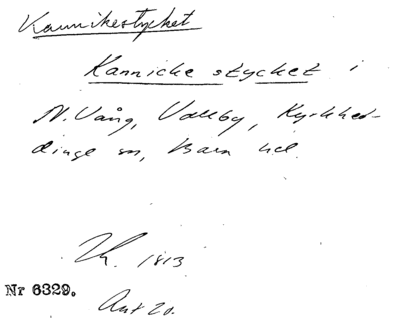 Kannikestycket
Kannicke stycket i
N. Vång, Vallby, Kyrkhed-
dinge sn, Bara hd.
1813
Nr 6329.
Ant 20.